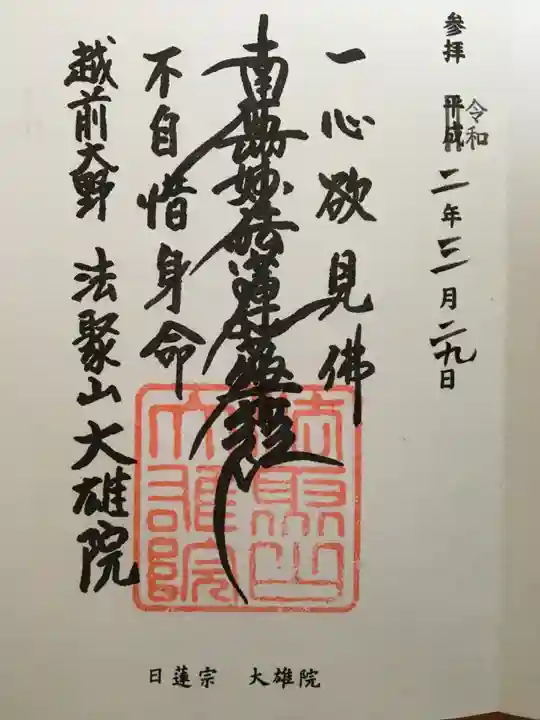 参拝 平成 令和 二年三月二九日
一心欲見佛
南無妙法蓮華経
不自惜身命
越前大野 法聚山大雄院
法聚山
大雄院
日蓮宗 大雄院